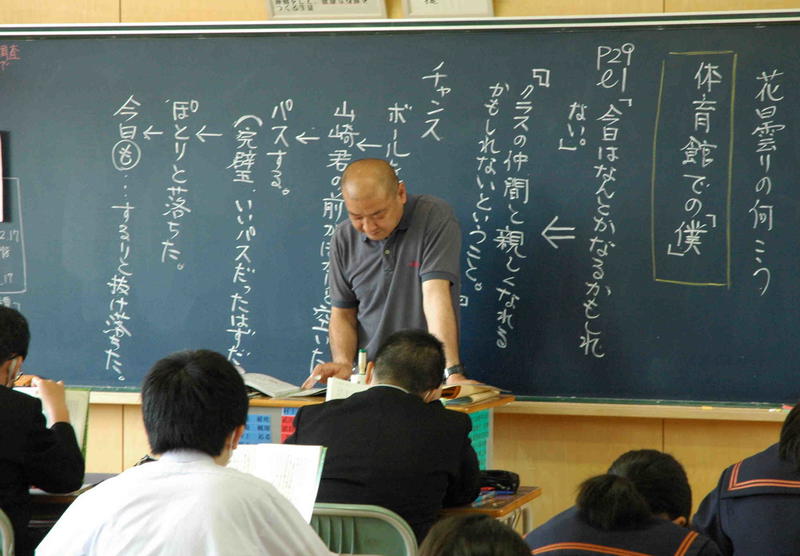 花曇りの向こう
体育館での「僕」
P29
l1「今日はなんとかなるかもしれ
ない。」
⇐
『クラスの仲間と親しくなれる
かもしれないということ。
チャンス
ボール
←
山崎君の前が
空いた
←
パスする。
(完璧、いいパスだったはずだ
←
ぽとりと落ちた。
←
今日も…するりと抜け落ちた。
つくる生徒